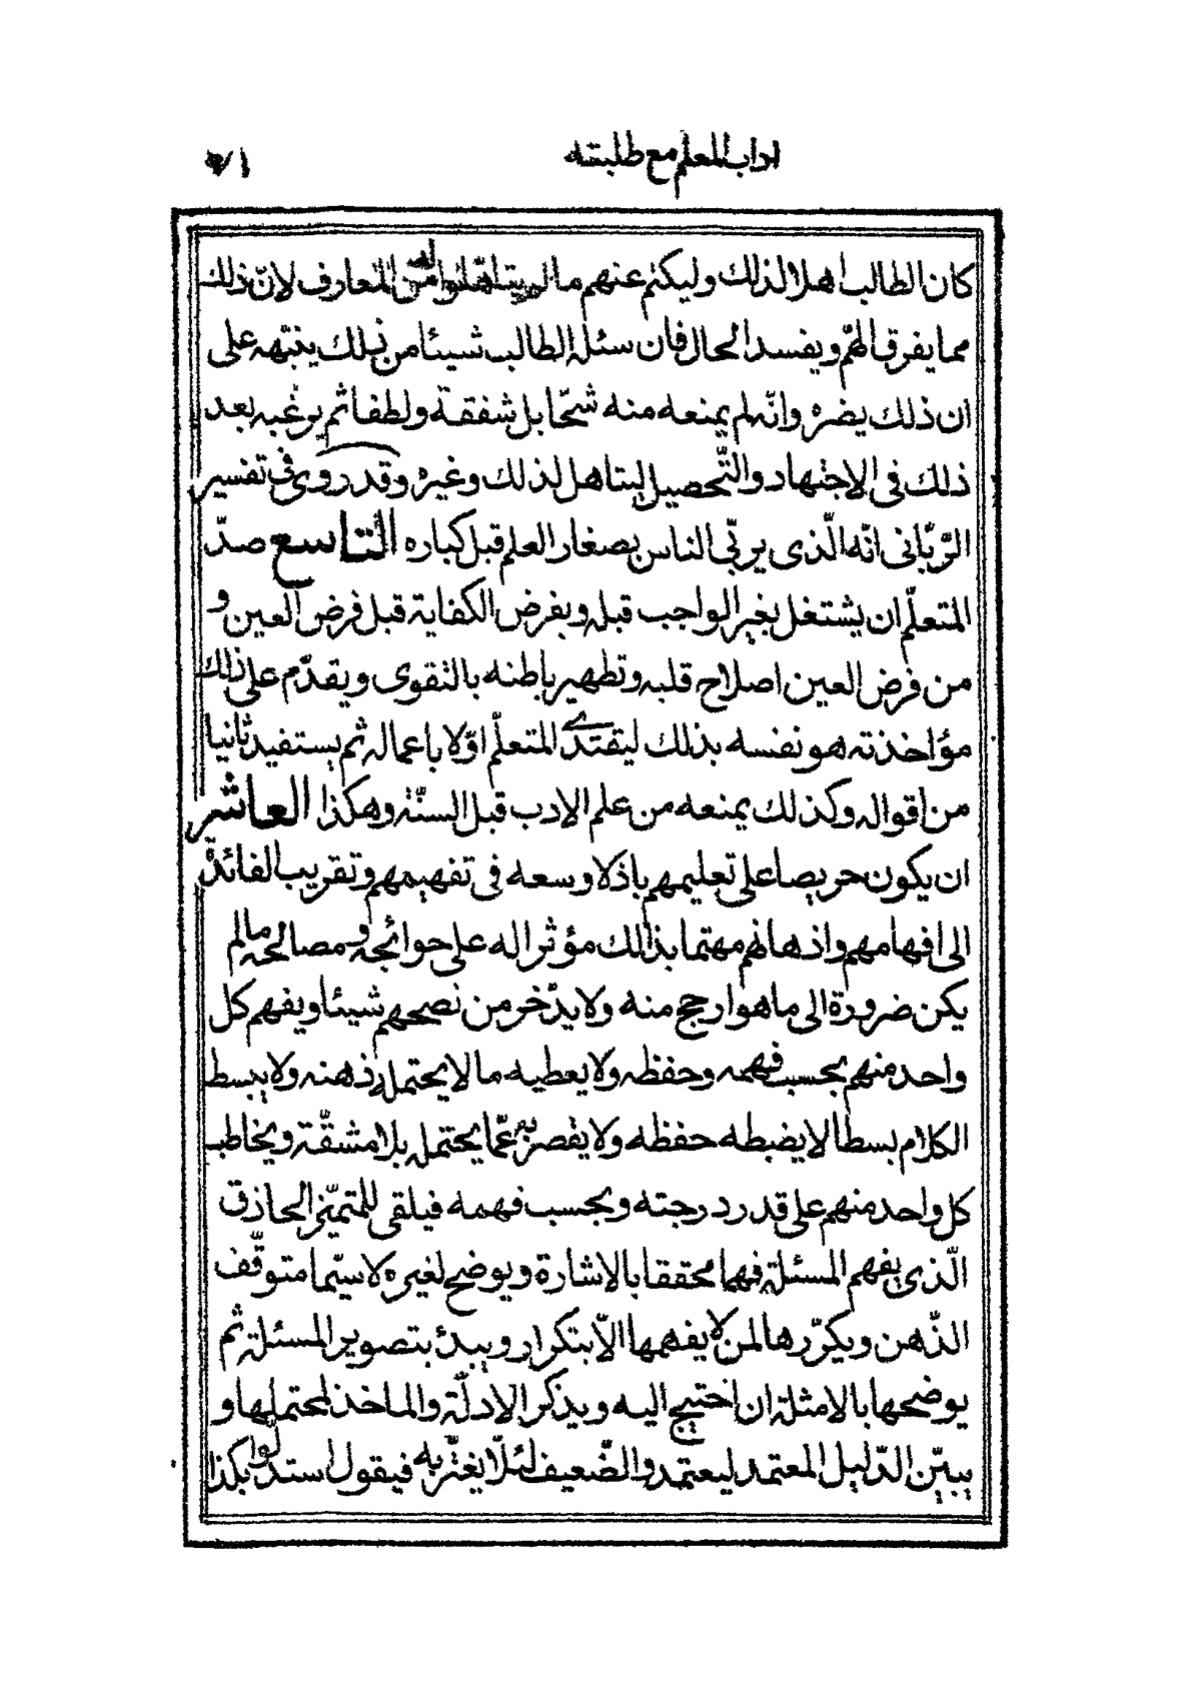 اداب المعلم مع طلبته
كان الطالب اهلا لذلك وليكتم عنهم ما لم يتاهلوا له من المعارف لانّ ذلك
مما يفرق الهمّ ويفسد الحال فان سئله الطالب شيئا من ذلك ينبّهه على
ان ذلك يضره وانّه لم يمنعه منه شحّا بل شفقة ولطفا ثم يرغبه بعد
ذلك فى الاجتهاد والتّحصيل ليتاهل لذلك وغيره وقد روى فى تفسير
الرّبّانى انّه الّذى يربّى الناس بصغار العلم قبل كباره التاسع صدّ
المتعلّم ان يشتغل بغير الواجب قبله وبفرض الكفاية قبل فرض العين و
من فرض العين اصلاح قلبه وتطهير باطنه بالتقوى ويقدّم على ذلك
مؤاخذته هو نفسه بذلك ليقتدى المتعلّم اوّلا باعماله ثم يستفيد ثانيا
من اقواله وكذلك يمنعه من علم الادب قبل السنّة وهكذا العاشر
ان يكون حريصا على تعليمهم باذلا وسعه فى تفهيمهم وتقريب الفائدة
الى افهامهم واذهانهم مهتما بذلك مؤثرا له على حوائجه و مصالحه ما لم
يكن ضرورة الى ما هو ارجح منه ولا يدّخر من نصحهم شيئا ويفهم كل
واحد منهم بحسب فهمه وحفظه ولا يعطيه ما لا يحتمله ذهنه ولا يبسط
الكلام بسطا لا يضبطه حفظه ولا يقصر به عمّا يحتمله بلا مشقّة ويخاطب
كل واحد منهم على قدر درجته وبحسب فهمه فيلقى للمتميّز الحاذق
الّذى يفهم المسئلة فهما محققا بالاشارة ويوضح لغيره لا سيّما متوقّف
الذّهن ويكرّرها لمن لا يفهمها الاّ بتكرار ويبدئ بتصوير المسئلة ثم
يوضحها بالامثلة ان احتيج اليه ويذكر الادلّة والماخذ لمحتملها و
يبيّن الدّليل المعتمد ليعتمد والضّعيف لئلّا يغترّ به فيقول استدلّوا بكذا